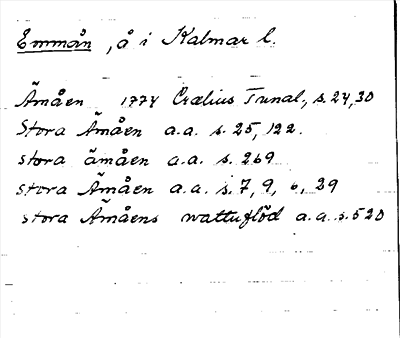 Emmån, å i Kalmar l.
Ämåen 1774 Crælius Tunal., s. 24, 30
Stora Ämåen a.a. s. 25, 122.
stora ämåen a.a. s. 269
stora Ämåen a.a. s. 7, 9, 6, 29
stora Ämåens wattuflöd a.a. s. 520